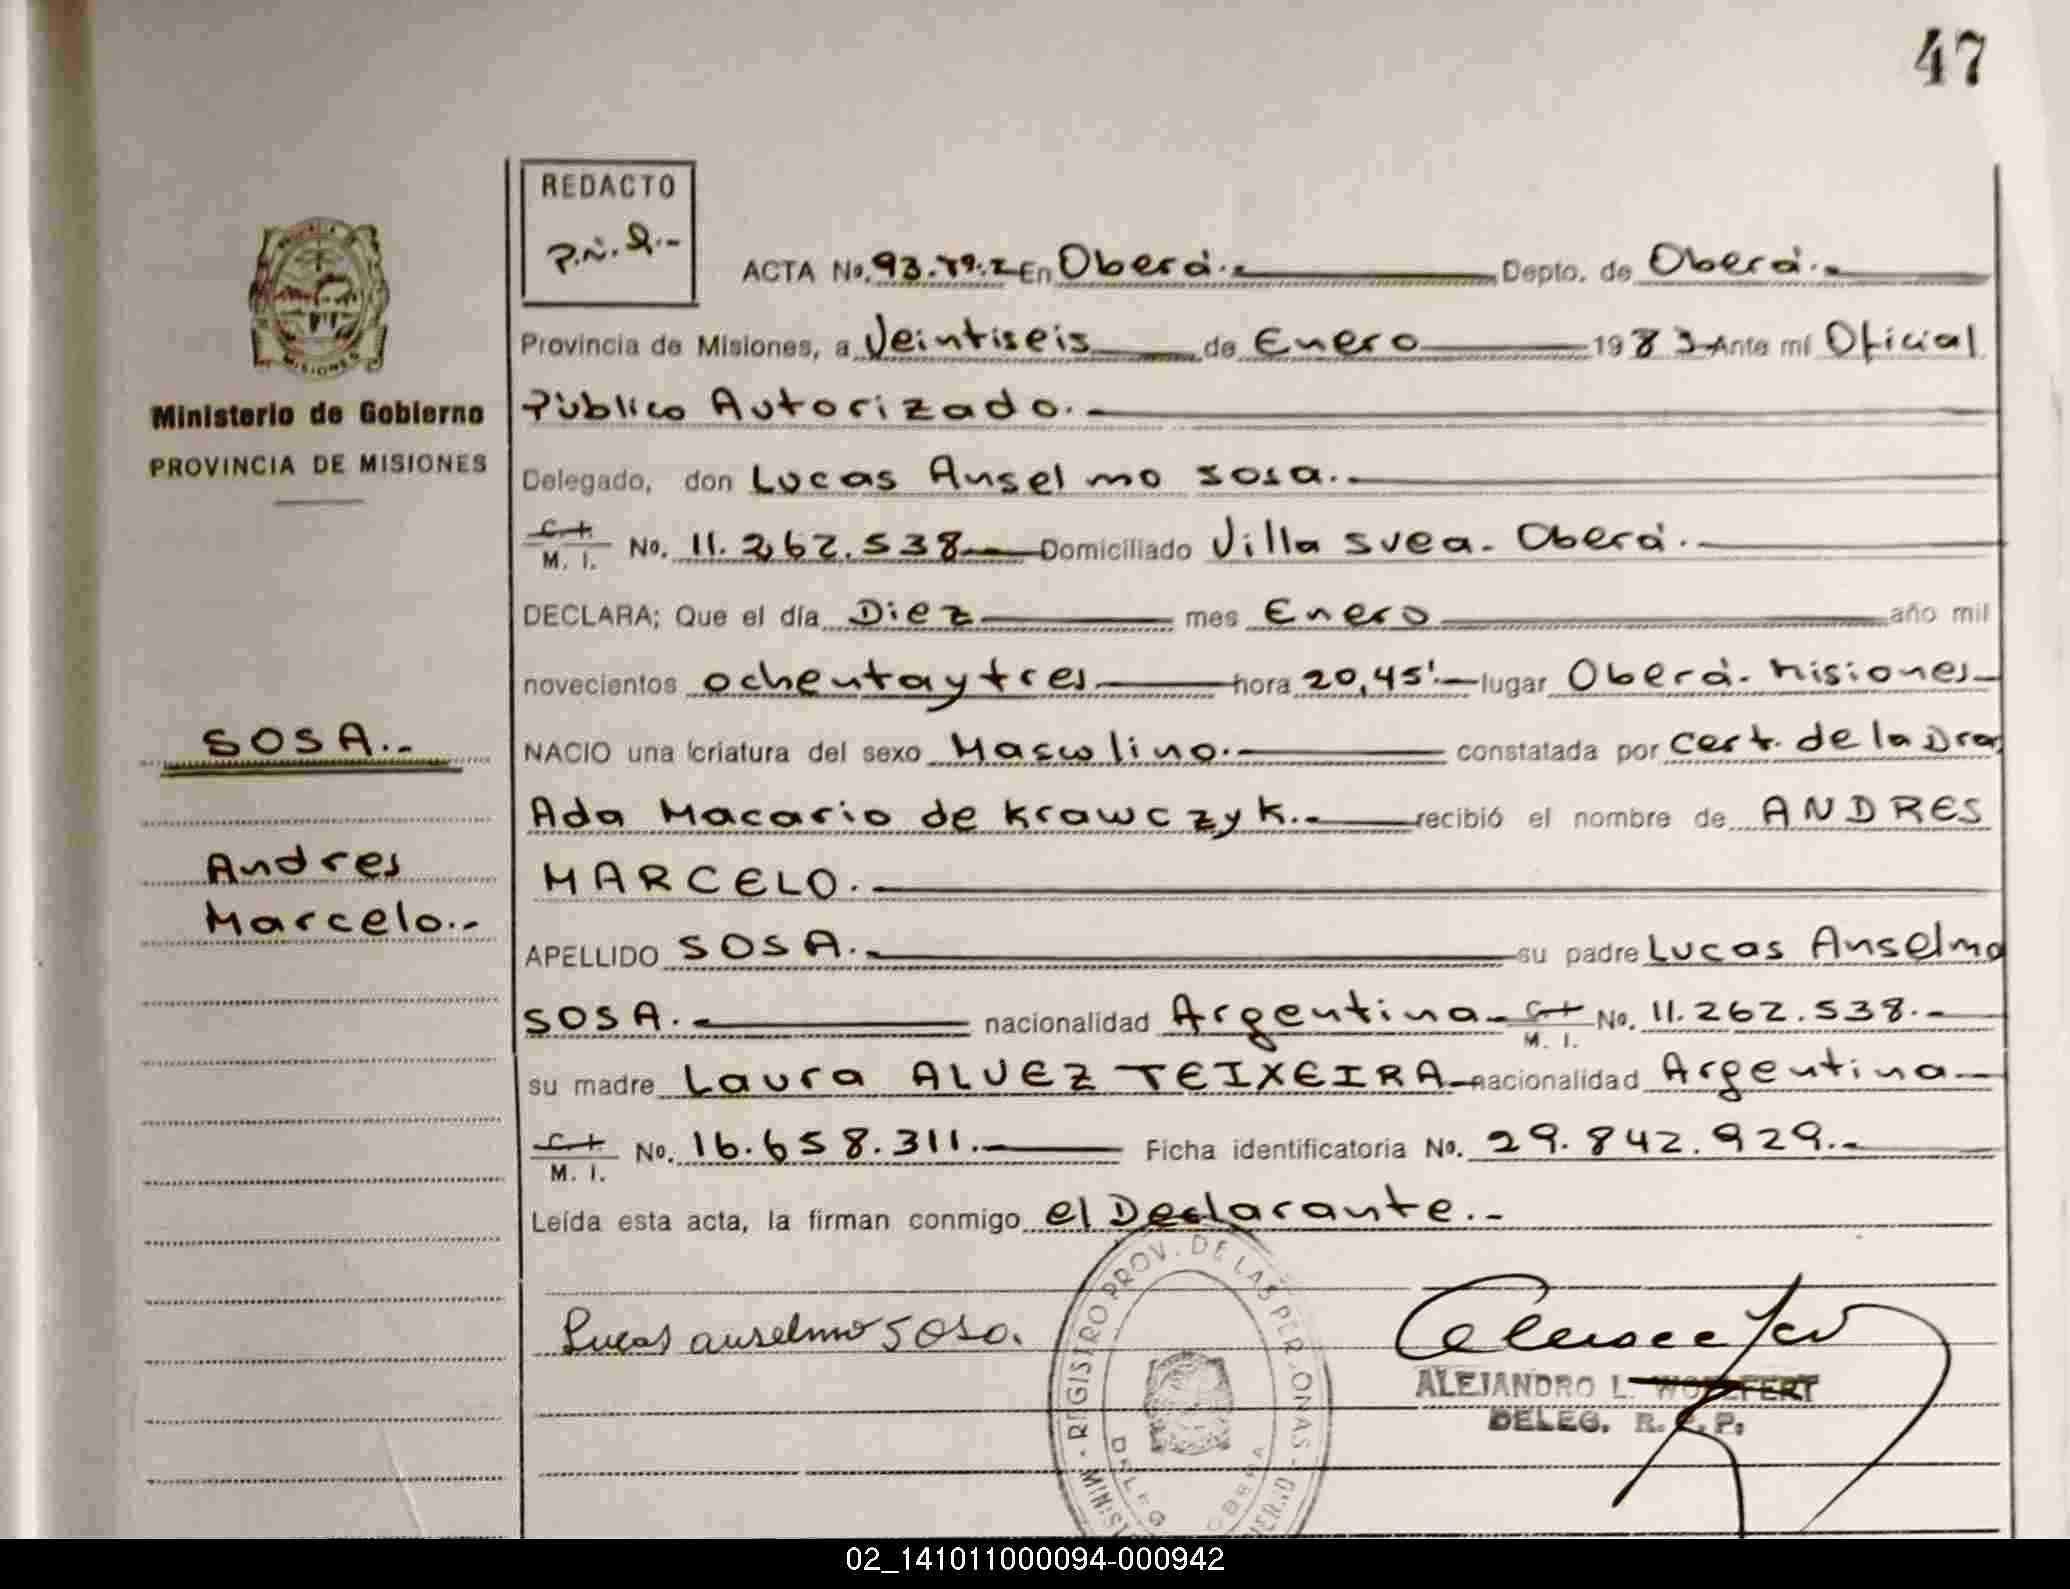 47
REDACTO
MISIONES
Ministerio de Gobierno
PROVINCIA DE MISIONES
ACTA No. 93. En Oberá.- Depto. de Oberá.-
Provincia de Misiones, a Veintiseis de Enero 1983 Ante mí Oficial
Público Autorizado.-
Delegado, don Lucas Anselmo sosa.-
M. I. No. 11.262.538 Domiciliado Villa svea- Oberá.-
DECLARA; Que el día Diez mes Enero año mil
novecientos ochentaytres hora 20,45'.- lugar Oberá- Misiones-
SOSA.-
NACIO una criatura del sexo Masculino.- constatada por Cert. de la Dra.
Ada Macario de Krawczyk.- recibió el nombre de ANDRES
Andres
MARCELO.-
Marcelo.-
APELLIDO SOSA.- su padre Lucas Anselmo
SOSA.- nacionalidad Argentina- M. I. No. 11.262.538.-
su madre Laura ALVEZ TEIXEIRA- nacionalidad Argentina-
M. I. No. 16.658.311.- Ficha identificatoria No. 29.842.929.-
Leída esta acta, la firman conmigo el Declarante.-
Lucas anselmo sosa.
REGISTRO PROV. DE LAS PERSONAS
DELEG OBERA
ALEJANDRO L. WOLFERT
DELEG. R. P. P.
02_141011000094-000942